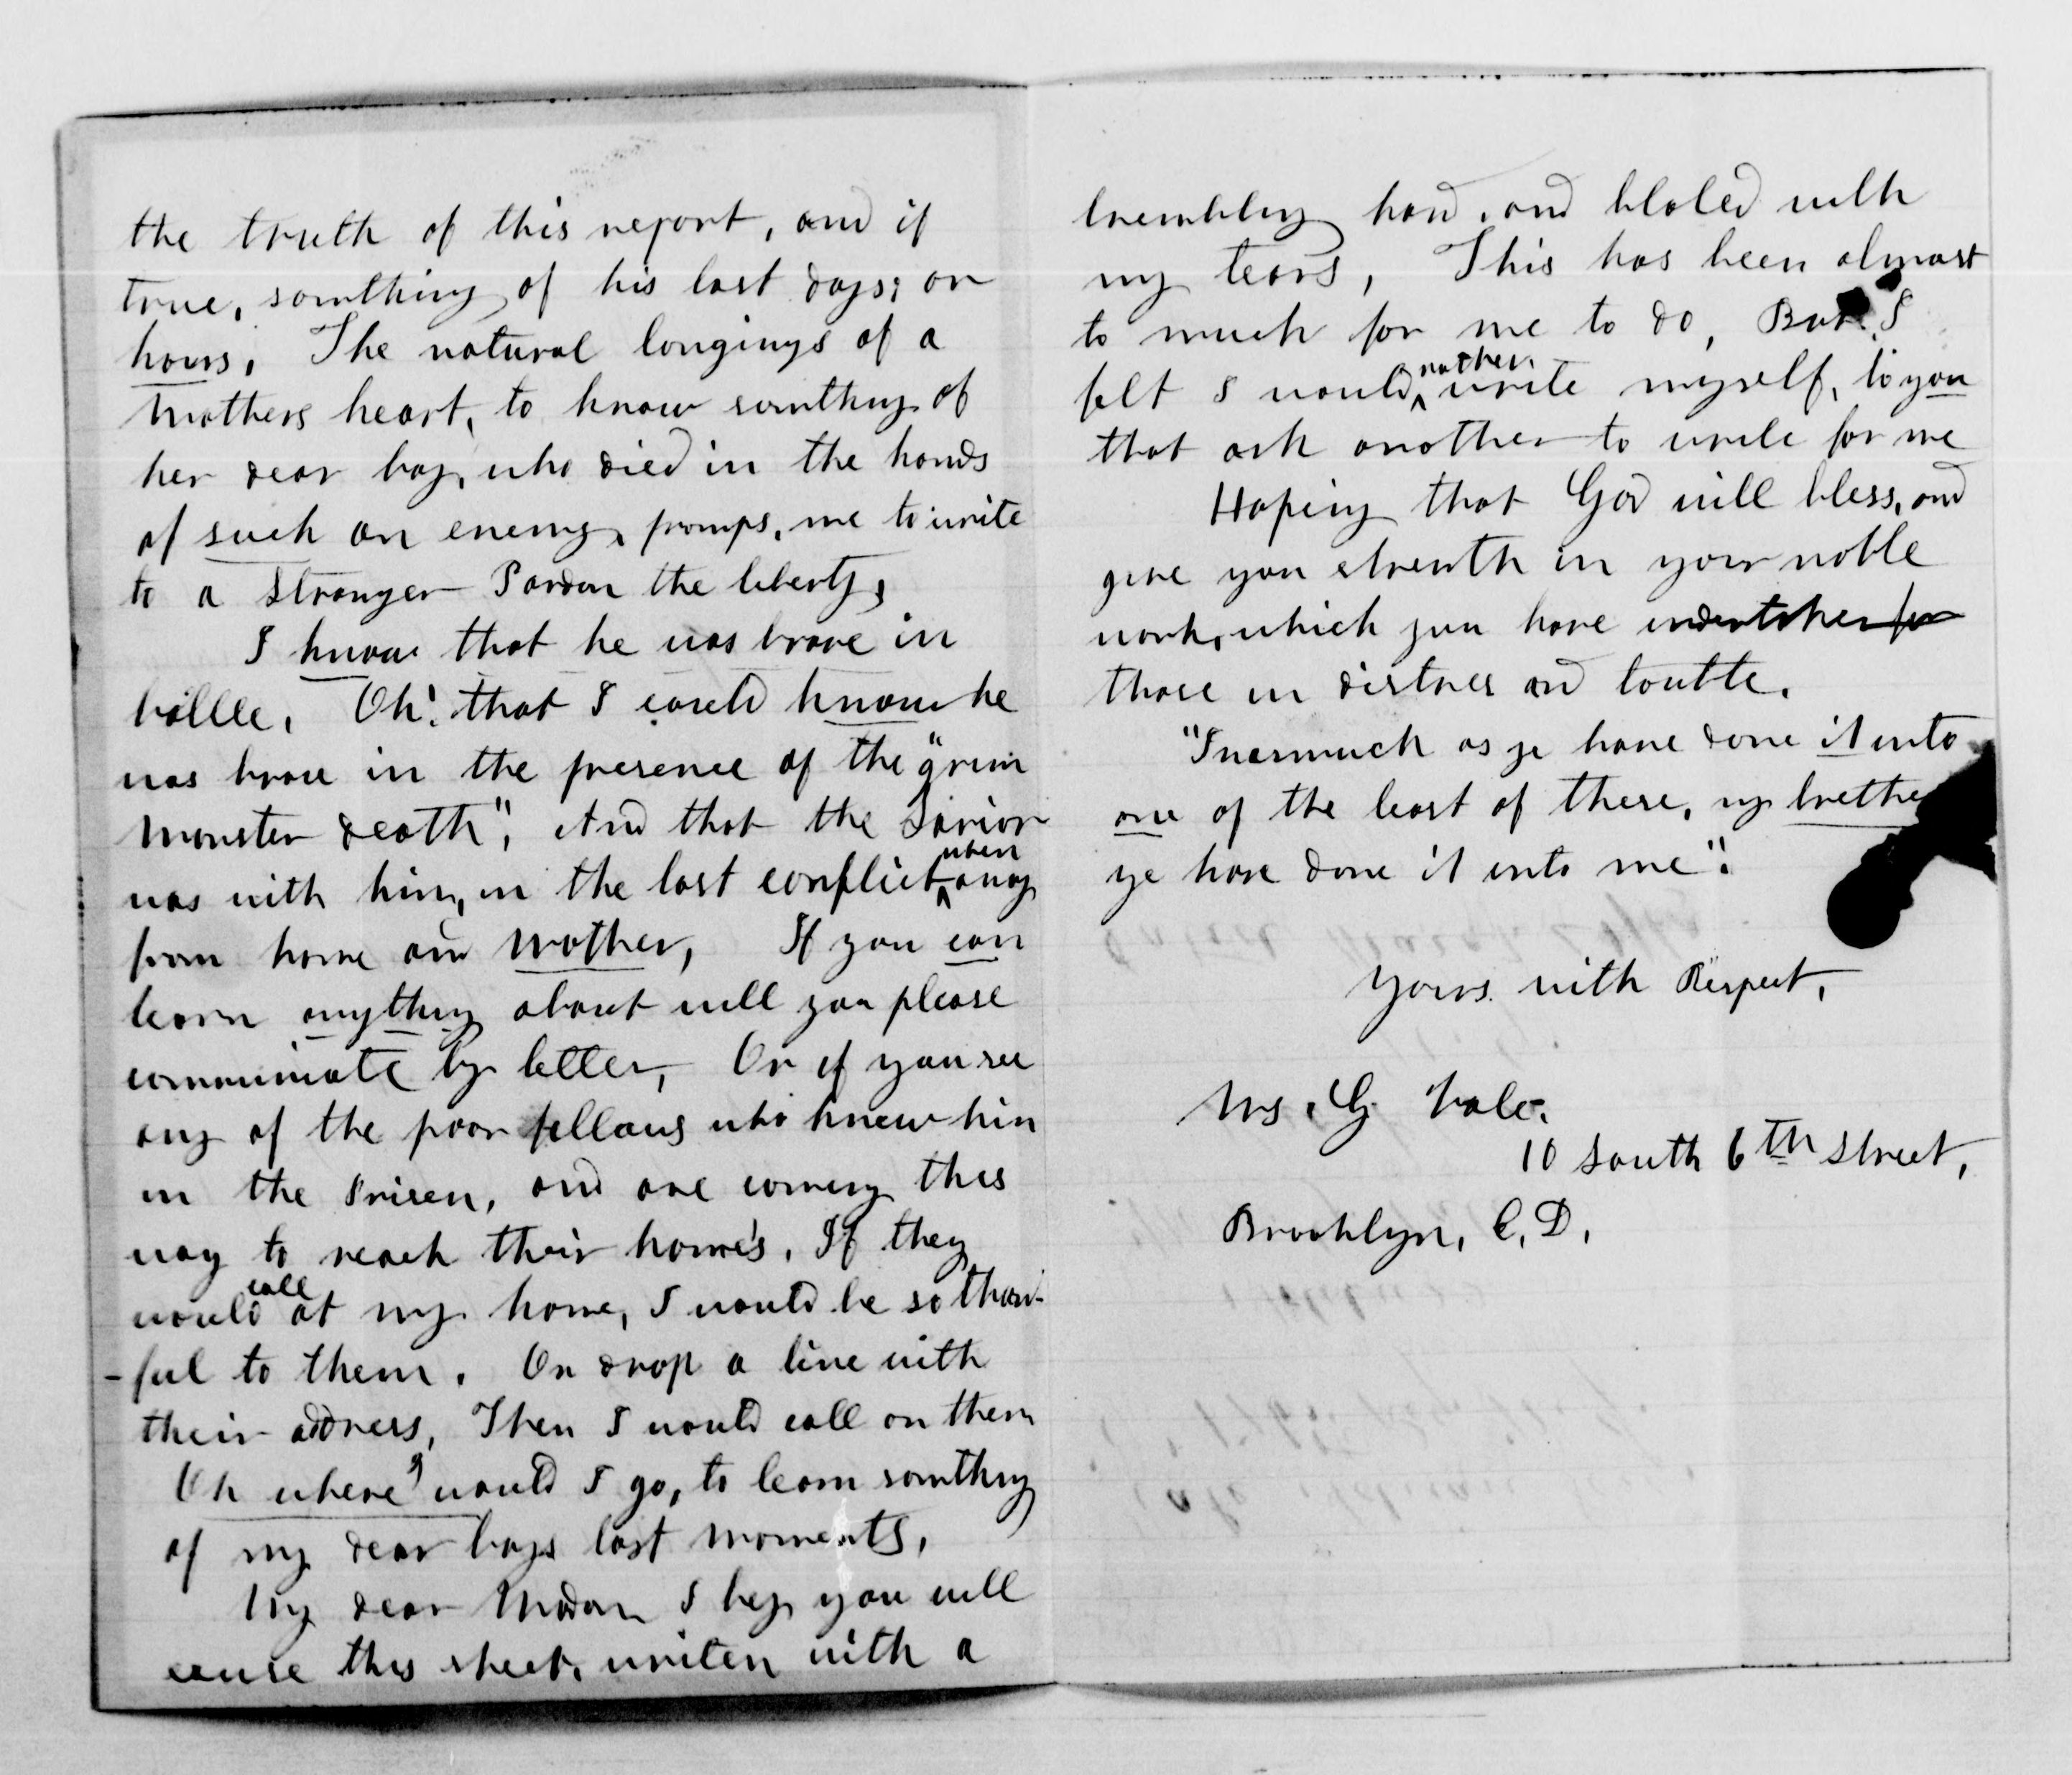 the truth of this report, and if
true, somthing of his last days; or
hours. The natural longings of a
Mothers heart, to know somthing of
her dear boy, who died in the hands
of such an enemy, promps, me to write
to a stranger Pardon the liberty,
I know that he was brave in
battle. Oh! that I could know he
was brave in the presence of the "grim
monster death", And that the Savior
was with him, in the last conflict when away
from home and Mother, If you can
learn anything about will you please
communicate by letter, Or if you see
any of the poor fellows who knew him
in the Prisen, and are coming this
way to reach their homes. If they
would call at my home, I would be so than-
-ful to them. Or drop a line with
their address, Then I would call on them
Oh where would I go, to learn somthing
of my dear boys last moments,
My dear Madam I beg you will
this sheet, writen with a
trembling hand, and bloted with
my tears, This has been almost
to much for me to do, But I
felt I would rather write myself, to you
that ask another to write for me
Hoping that God will bless, and
give you strenth in your noble
work, which you have undertaken for
those in distress and
"Inasmuch as ye have done it unto
one of the least of these, my brethe
ye have done it unto me".
Yours with Respect,
Mrs. G
10 South 6th Street,
Brooklyn, E, D,